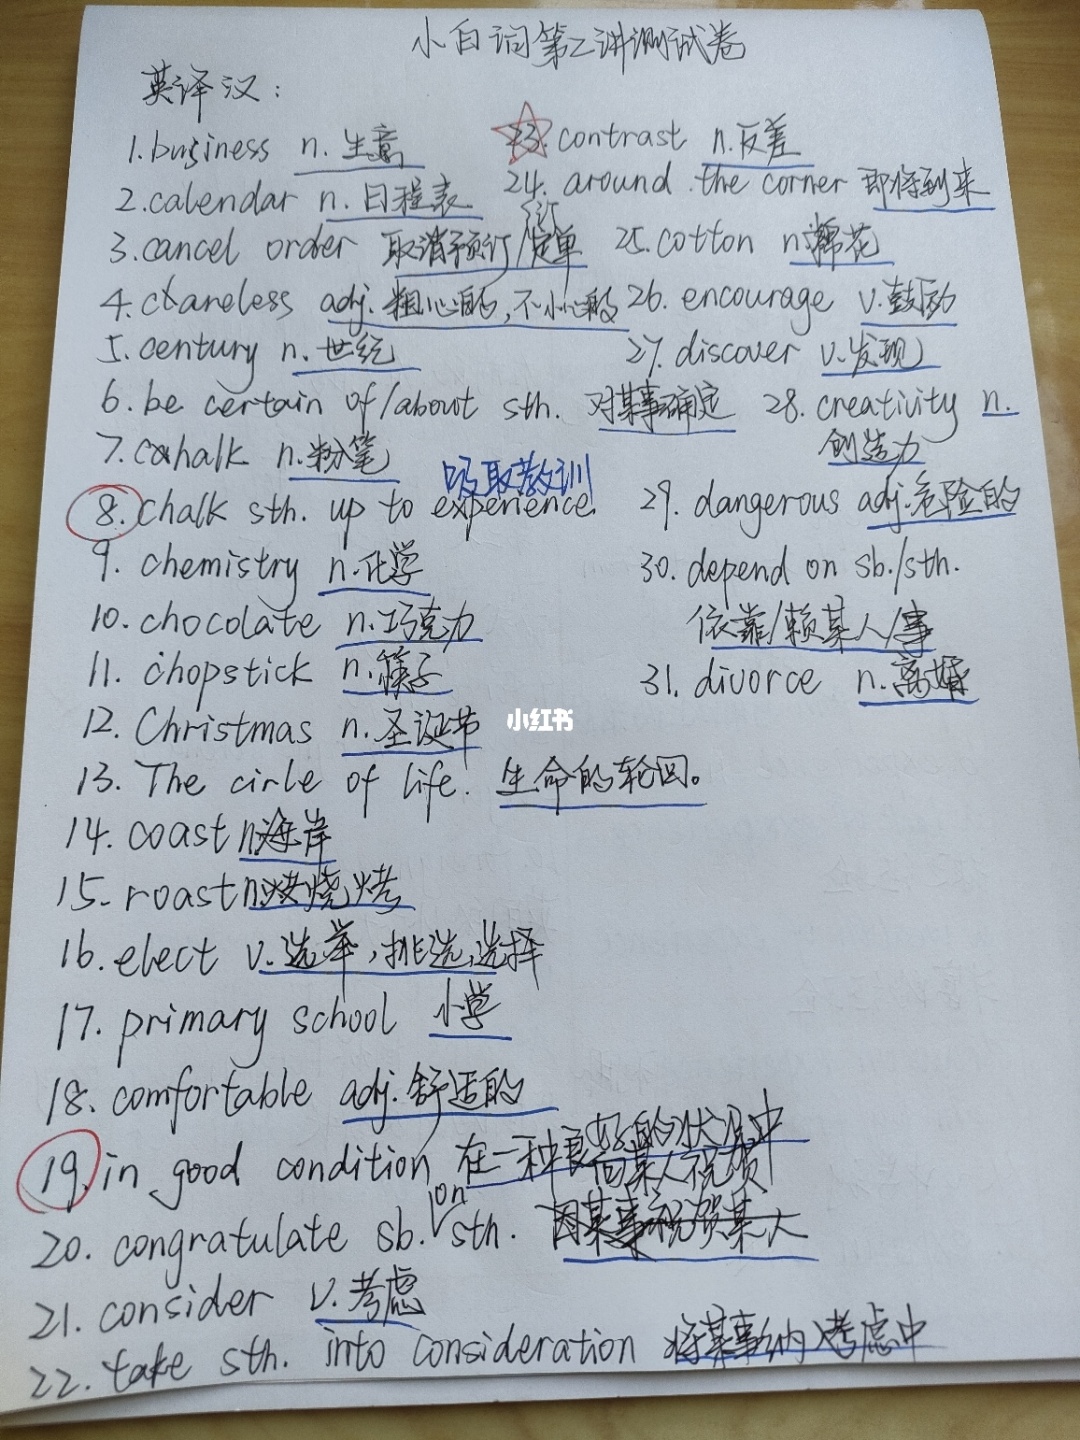 小白词第二讲测试卷
英译汉：
1. business n. 生意
2. calendar n. 日程表
3. cancel order 取消预订/订单
4. careless adj. 粗心的，不小心的
5. century n. 世纪
6. be certain of/about sth. 对某事确定
7. chalk n. 粉笔
8. chalk sth. up to experience. 吸取教训
9. chemistry n. 化学
10. chocolate n. 巧克力
11. chopstick n. 筷子
12. Christmas n. 圣诞节
13. The cirle of life. 生命的轮回。
14. coast n. 海岸
15. roast n. 烧烤
16. elect v. 选举，挑选，选择
17. primary school 小学
18. comfortable adj. 舒适的
19. in good condition 在一种良好的状况中
20. congratulate sb. on sth. 因某事祝贺某人
向某人祝贺
21. consider v. 考虑
22. take sth. into consideration 将某事纳入考虑中
23. contrast n. 反差
24. around the corner 即将到来
25. cotton n. 棉花
26. encourage v. 鼓励
27. discover v. 发现
28. creativity n.
创造力
29. dangerous adj. 危险的
30. depend on sb./sth.
依靠/赖某人/事
31. divorce n. 离婚
小红书